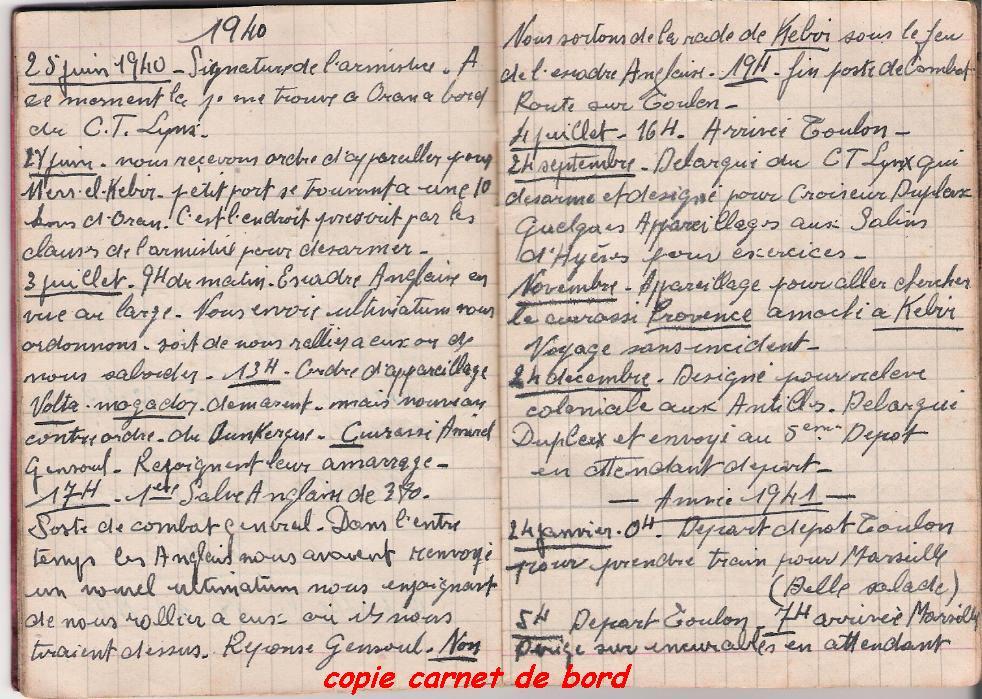 1940
25 juin 1940 - Signature de l'armistice. A
ce moment là je me trouve a Oran a bord
du C.T. Lynx.
27 juin. nous reçevons ordre d'appareiller pour
Mers-el-Kebir. petit port se trouvant a une 10
Kms d'Oran. C'est l'endroit prescrit par les
clauses de l'armistice pour desarmer -
3 juillet. 9H du matin. Escadre Anglaise en
vue au large. Nous envoie ultimatum nous
ordonnons. soit de nous rallier a eux ou de
nous saborder - 13H - Ordre d'appareillage
Volta - mogador demarent - mais nouveau
contre ordre - du Dunkerque - Cuirassé Amiral
Gensoul - Rejoignent leur amarrage -
17H. 1ere Salve Anglaise de 380.
Poste de combat general - Dans l'entre
temps les Anglais nous avaient renvoyé
un nouvel ultimatum nous enjoignant
de nous rallier a eux où ils nous
tiraient dessus. Reponse Gensoul. Non
Nous sortons de la rade de Kebir sous le feu
de l'escadre Anglaise. 19H. fin poste de Combat
Route sur Toulon -
4 juillet - 16H. Arrivée Toulon -
24 septembre - Delargué du CT Lynx qui
desarme et designé pour Croiseur Dupleix
Quelques Appareillages aux Salins
d'Hyères pour exercices -
Novembre - Appareillage pour aller chercher
le cuirassé Provence amoché a Kebir
Voyage sans incident -
24 decembre - Designé pour releve
coloniale aux Antilles. Delargué
Dupleix et envoyé au 5eme Depot
en attendant depart -
— Année 1941 —
24 janvier. 0H. Depart depot Toulon
pour prendre train pour Marseille
(Belle salade)
5H Depart Toulon. 7H arrivée Marseille
Dirigé sur incurables en attendant
copie carnet de bord